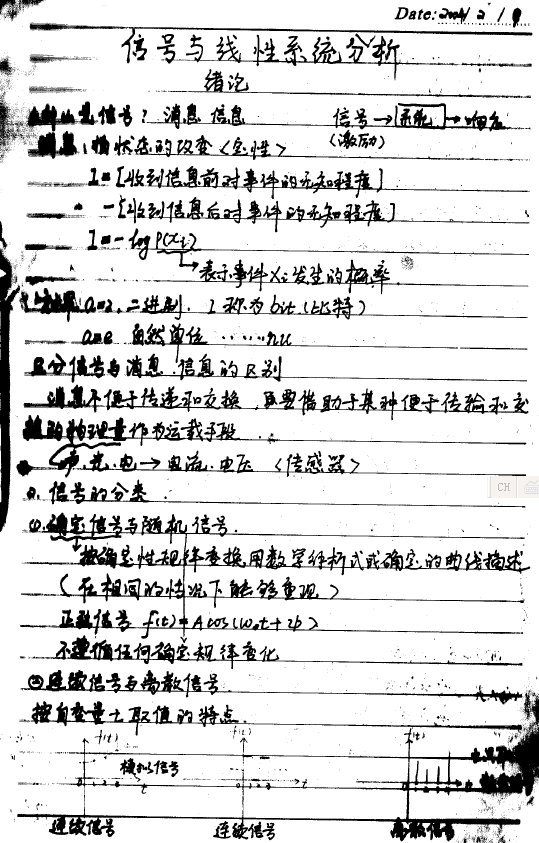 Date:
信号与线性系统分析
绪论
什么是信号? 消息 信息 信号→系统→响应
(激励)
消息:物状态的改变<定性>
I=[收到信息前对事件的无知程度]
-[收到信息后对事件的无知程度]
I=-log P(xi)
表示事件Xi发生的概率.
a=2, 二进制, I 称为bit(比特)
a=e 自然单位 ……nu
区分信号与消息.信息的区别
消息不便于传递和交换,且要借助于某种便于传输和交
换的物理量作为运载手段
声.光.电→电流.电压 <传感器>
信号的分类
确定信号与随机信号.
按确定性规律变换,用数学解析式或确定的曲线描述
(在相同的情况下能够重现)
正弦信号 f(t)=Acos(ω0t+
不遵循任何确定规律变化
②连续信号与离散信号.
按自变量t取值的特点.
f(t) f(t) f(t)
模拟信号
0 1 2 3 t 0 1 2 3 t
连续信号 连续信号 离散信号
CH